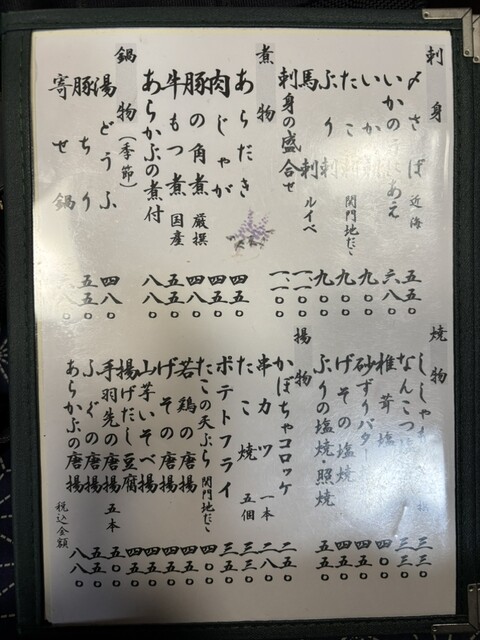 刺身
〆さば 近海 五五〇
いかのうにあえ 六八〇
いか 九〇〇
たこ 関門地だこ 九〇〇
ぶり刺 九〇〇
馬刺 ルイベ 一、一〇〇
刺身の盛合せ 一、一〇〇
煮物
あらだき 四五〇
肉じゃが 四五〇
豚の角煮 厳撰 四八〇
牛もつ煮 国産 五五〇
あらかぶの煮付 八八〇
鍋物(季節)
湯どうふ 四八〇
豚ちり 五五〇
寄せ鍋
焼物
ししゃも 三三〇
なんこつ 三三〇
椎茸塩 四〇〇
砂ずりバター 四五〇
げその塩焼 五五〇
ぶりの塩焼・照焼 五五〇
揚物
かぼちゃコロッケ 二五〇
串カツ 一本 二八〇
たこ焼 五個 三五〇
ポテトフライ 三五〇
たこの天ぷら 関門地だこ 四〇〇
若鶏の唐揚 四五〇
げその唐揚 四五〇
山芋いそべ揚 四五〇
揚げだし豆腐 四五〇
手羽先の唐揚 五本 五〇〇
ふぐの唐揚 八五〇
あらかぶの唐揚 八八〇
税込金額